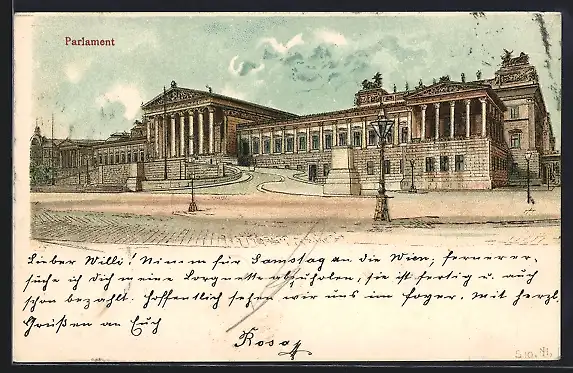 Parlament
Lieber Willi! Nimm für Samstag an die Wien, fernerer-
suche ich Dich meine Lorgnette abzuholen, sie ist fertig u. auch
schon bezahlt. Hoffentlich sehen wir uns im Foyer. Mit herzl.
Grüßen an Euch
Rosa